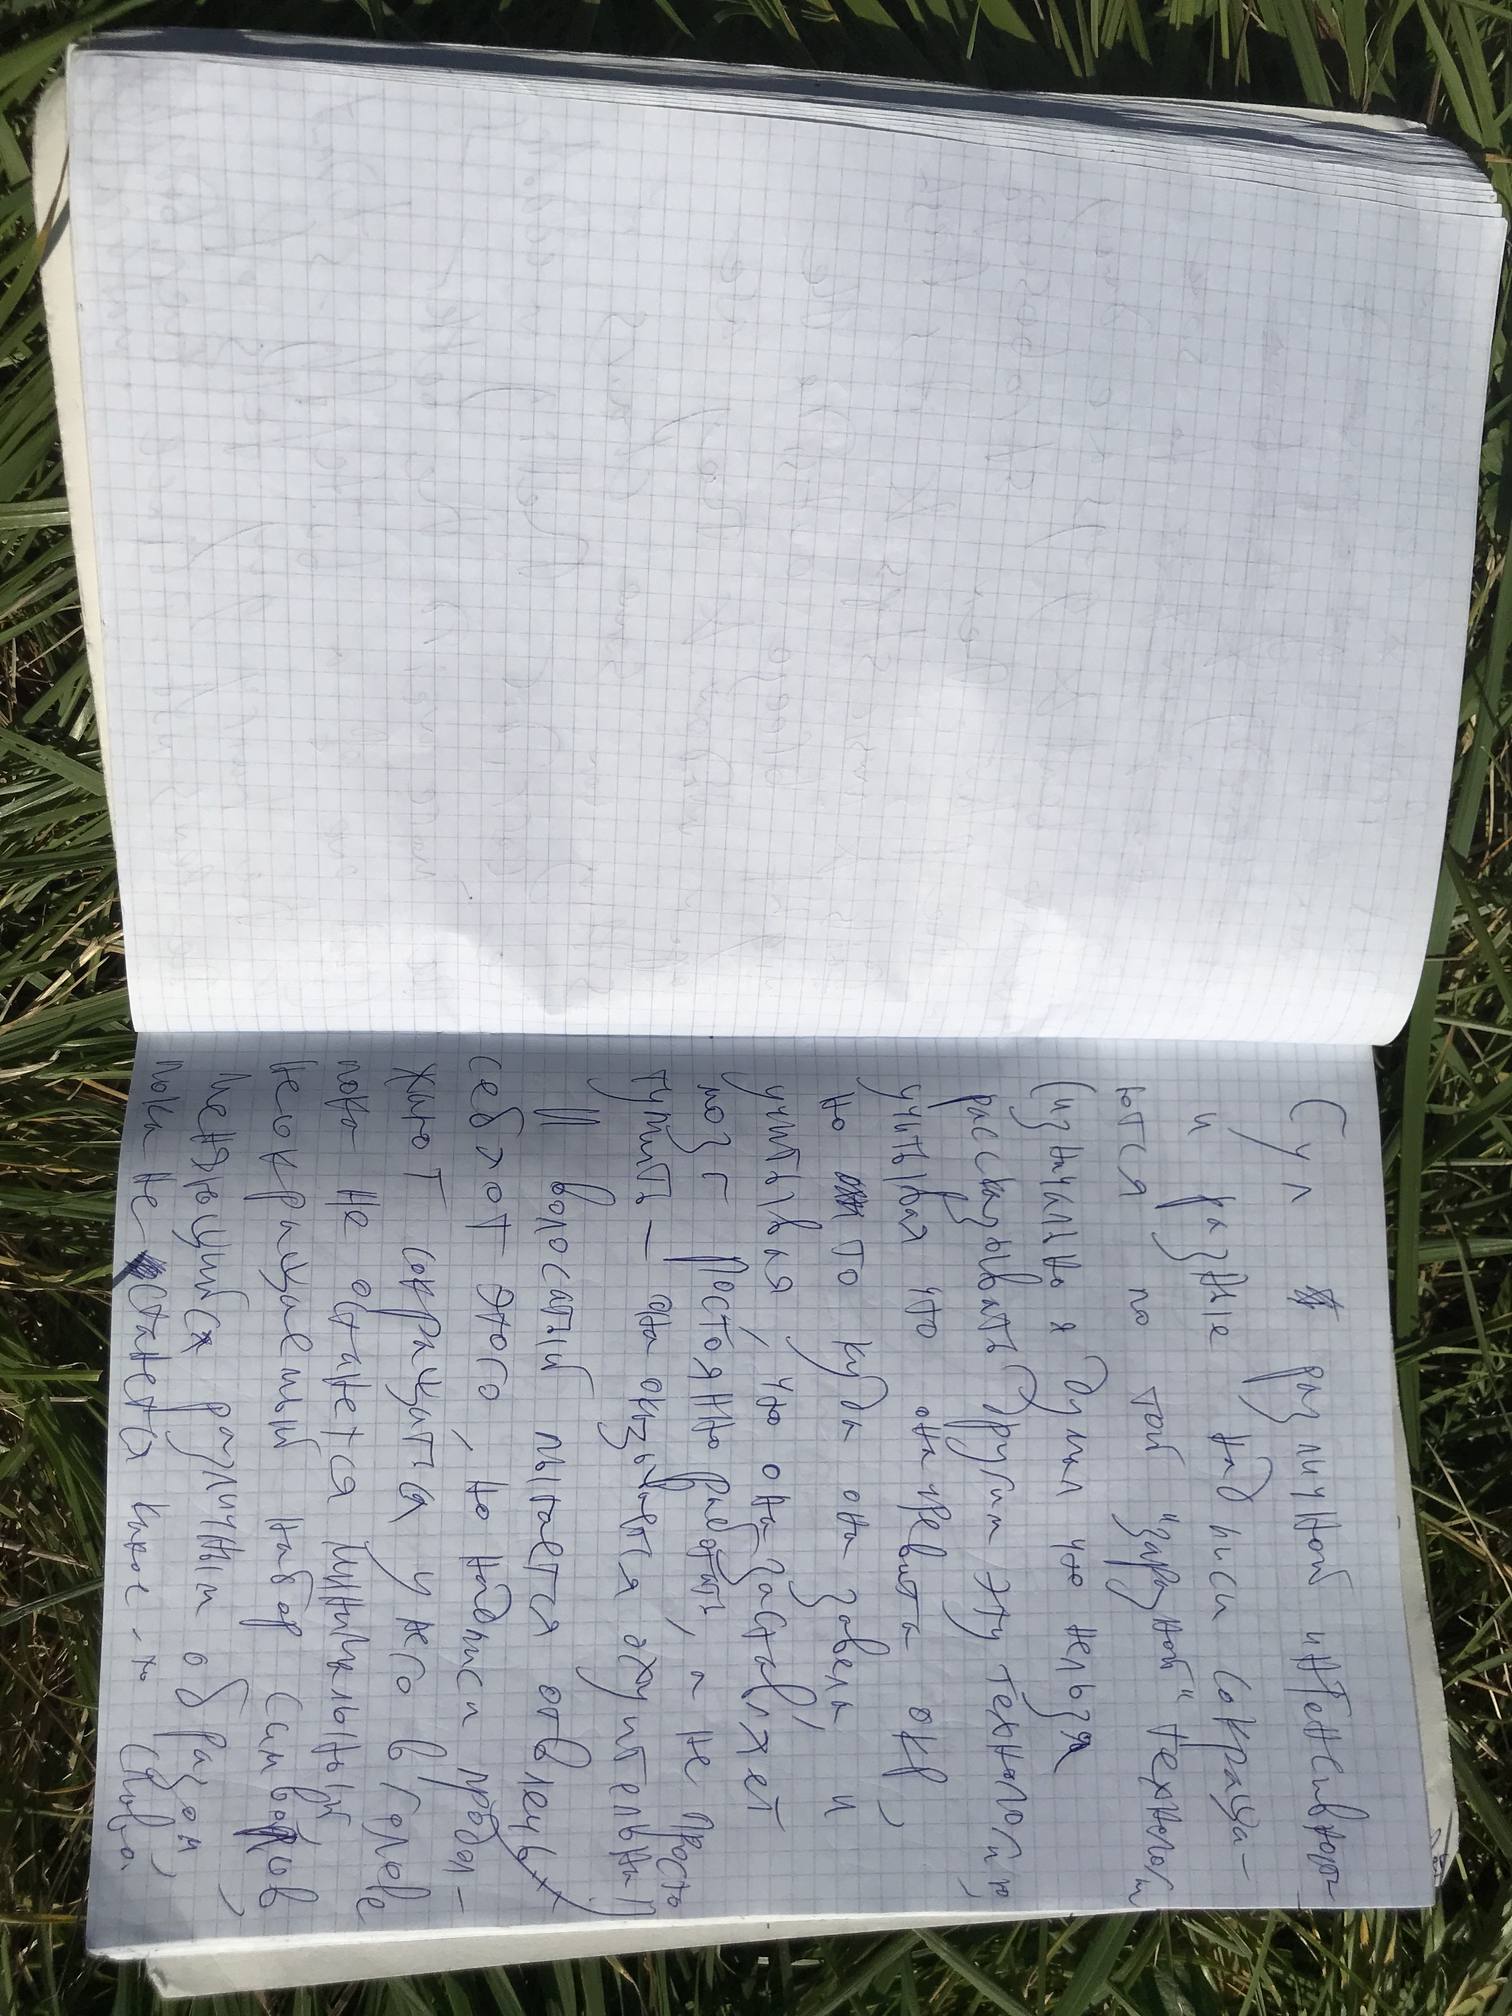 Сул различной интенсивнос-
и разные надписи сокраща-
ются по той "заразной" технолог
(изначально я думал что нельзя
рассказывать другим эту технологию,
учитывая что она
но то куда она завела и
учитывая, что она заставляет
мозг постоянно работать, а не просто
тупить — она оказывается охуительна)
|| волосатый пытается отвлечь
себя от этого, но надписи продол-
жают сокращаться у него в голове
пока не останется минимальный
несокращаемый набор символов
меняющийся различным образом,
пока не останется какое-то слово